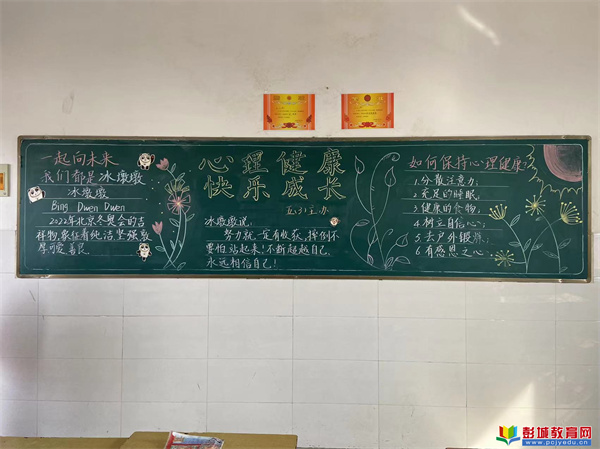 一起向未来
我们都是冰墩墩
冰墩墩
Bing Dwen Dwen
2022年北京冬奥会的吉
祥物,象征着纯洁坚强,敦
厚可爱善良
心理健康
快乐成长
五(3)主办
冰墩墩说,
努力就一定有收获,摔倒不
要怕,站起来!不断超越自己
永远相信自己!
如何保持心理健康?
1.分散注意力;
2.充足的睡眠;
3.健康的食物;
4.树立自信心;
5.去户外锻炼;
6.有感恩之心;
彭城教育网
www.pcjyedu.cn